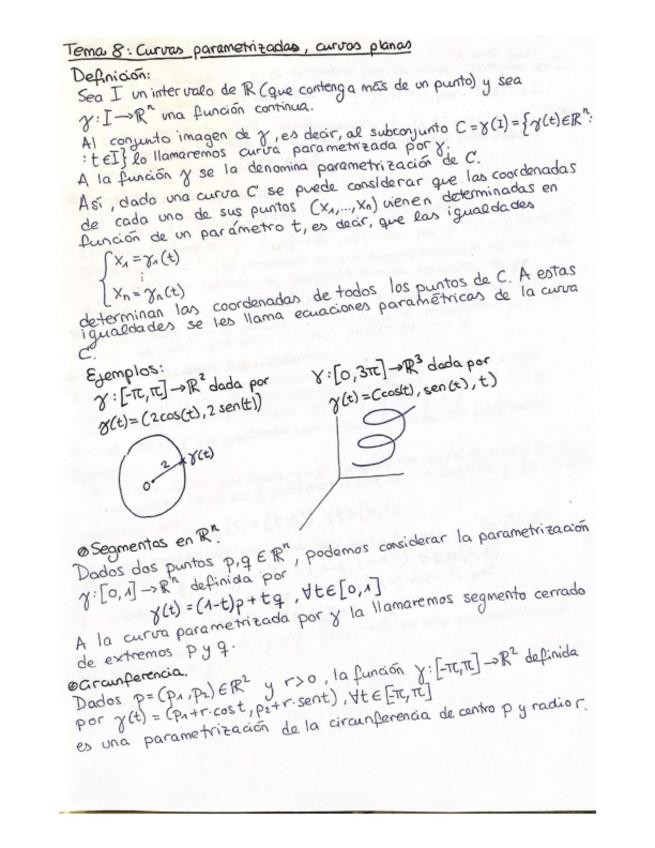 Tema 8: Curvas parametrizadas, curvas planas
Definición:
Sea I un intervalo de ℝ (que contenga más de un punto) y sea
γ: I→ℝⁿ una función continua.
Al conjunto imagen de γ, es decir, al subconjunto C=γ(I)={γ(t)∈ℝⁿ:
: t∈I} lo llamaremos curva parametrizada por γ.
A la función γ se la denomina parametrización de C.
Así, dada una curva C se puede considerar que las coordenadas
de cada uno de sus puntos (x₁,...,xₙ) vienen determinadas en
función de un parámetro t, es decir, que las igualdades
{ x₁=γ₁(t)
⋮
xₙ=γₙ(t)
determinan las coordenadas de todos los puntos de C. A estas
igualdades se les llama ecuaciones paramétricas de la curva
C.
Ejemplos:
γ:[-π,π]→ℝ² dada por
γ(t)=(2cos(t),2 sen(t))
γ:[0,3π]→ℝ³ dada por
γ(t)=(cos(t), sen(t), t)
0 2 γ(t)
Segmentos en ℝⁿ.
Dados dos puntos p,q ∈ ℝⁿ, podemos considerar la parametrización
γ:[0,1]→ℝⁿ definida por
γ(t)=(1-t)p+tq, ∀t∈[0,1]
A la curva parametrizada por γ la llamaremos segmento cerrado
de extremos p y q.
Circunferencia.
Dados p=(p₁,p₂)∈ℝ² y r>0, la función γ:[-π,π]→ℝ² definida
por γ(t)=(p₁+r·cost, p₂+r·sent), ∀t∈[π,π]
es una parametrización de la circunferencia de centro p y radio r.